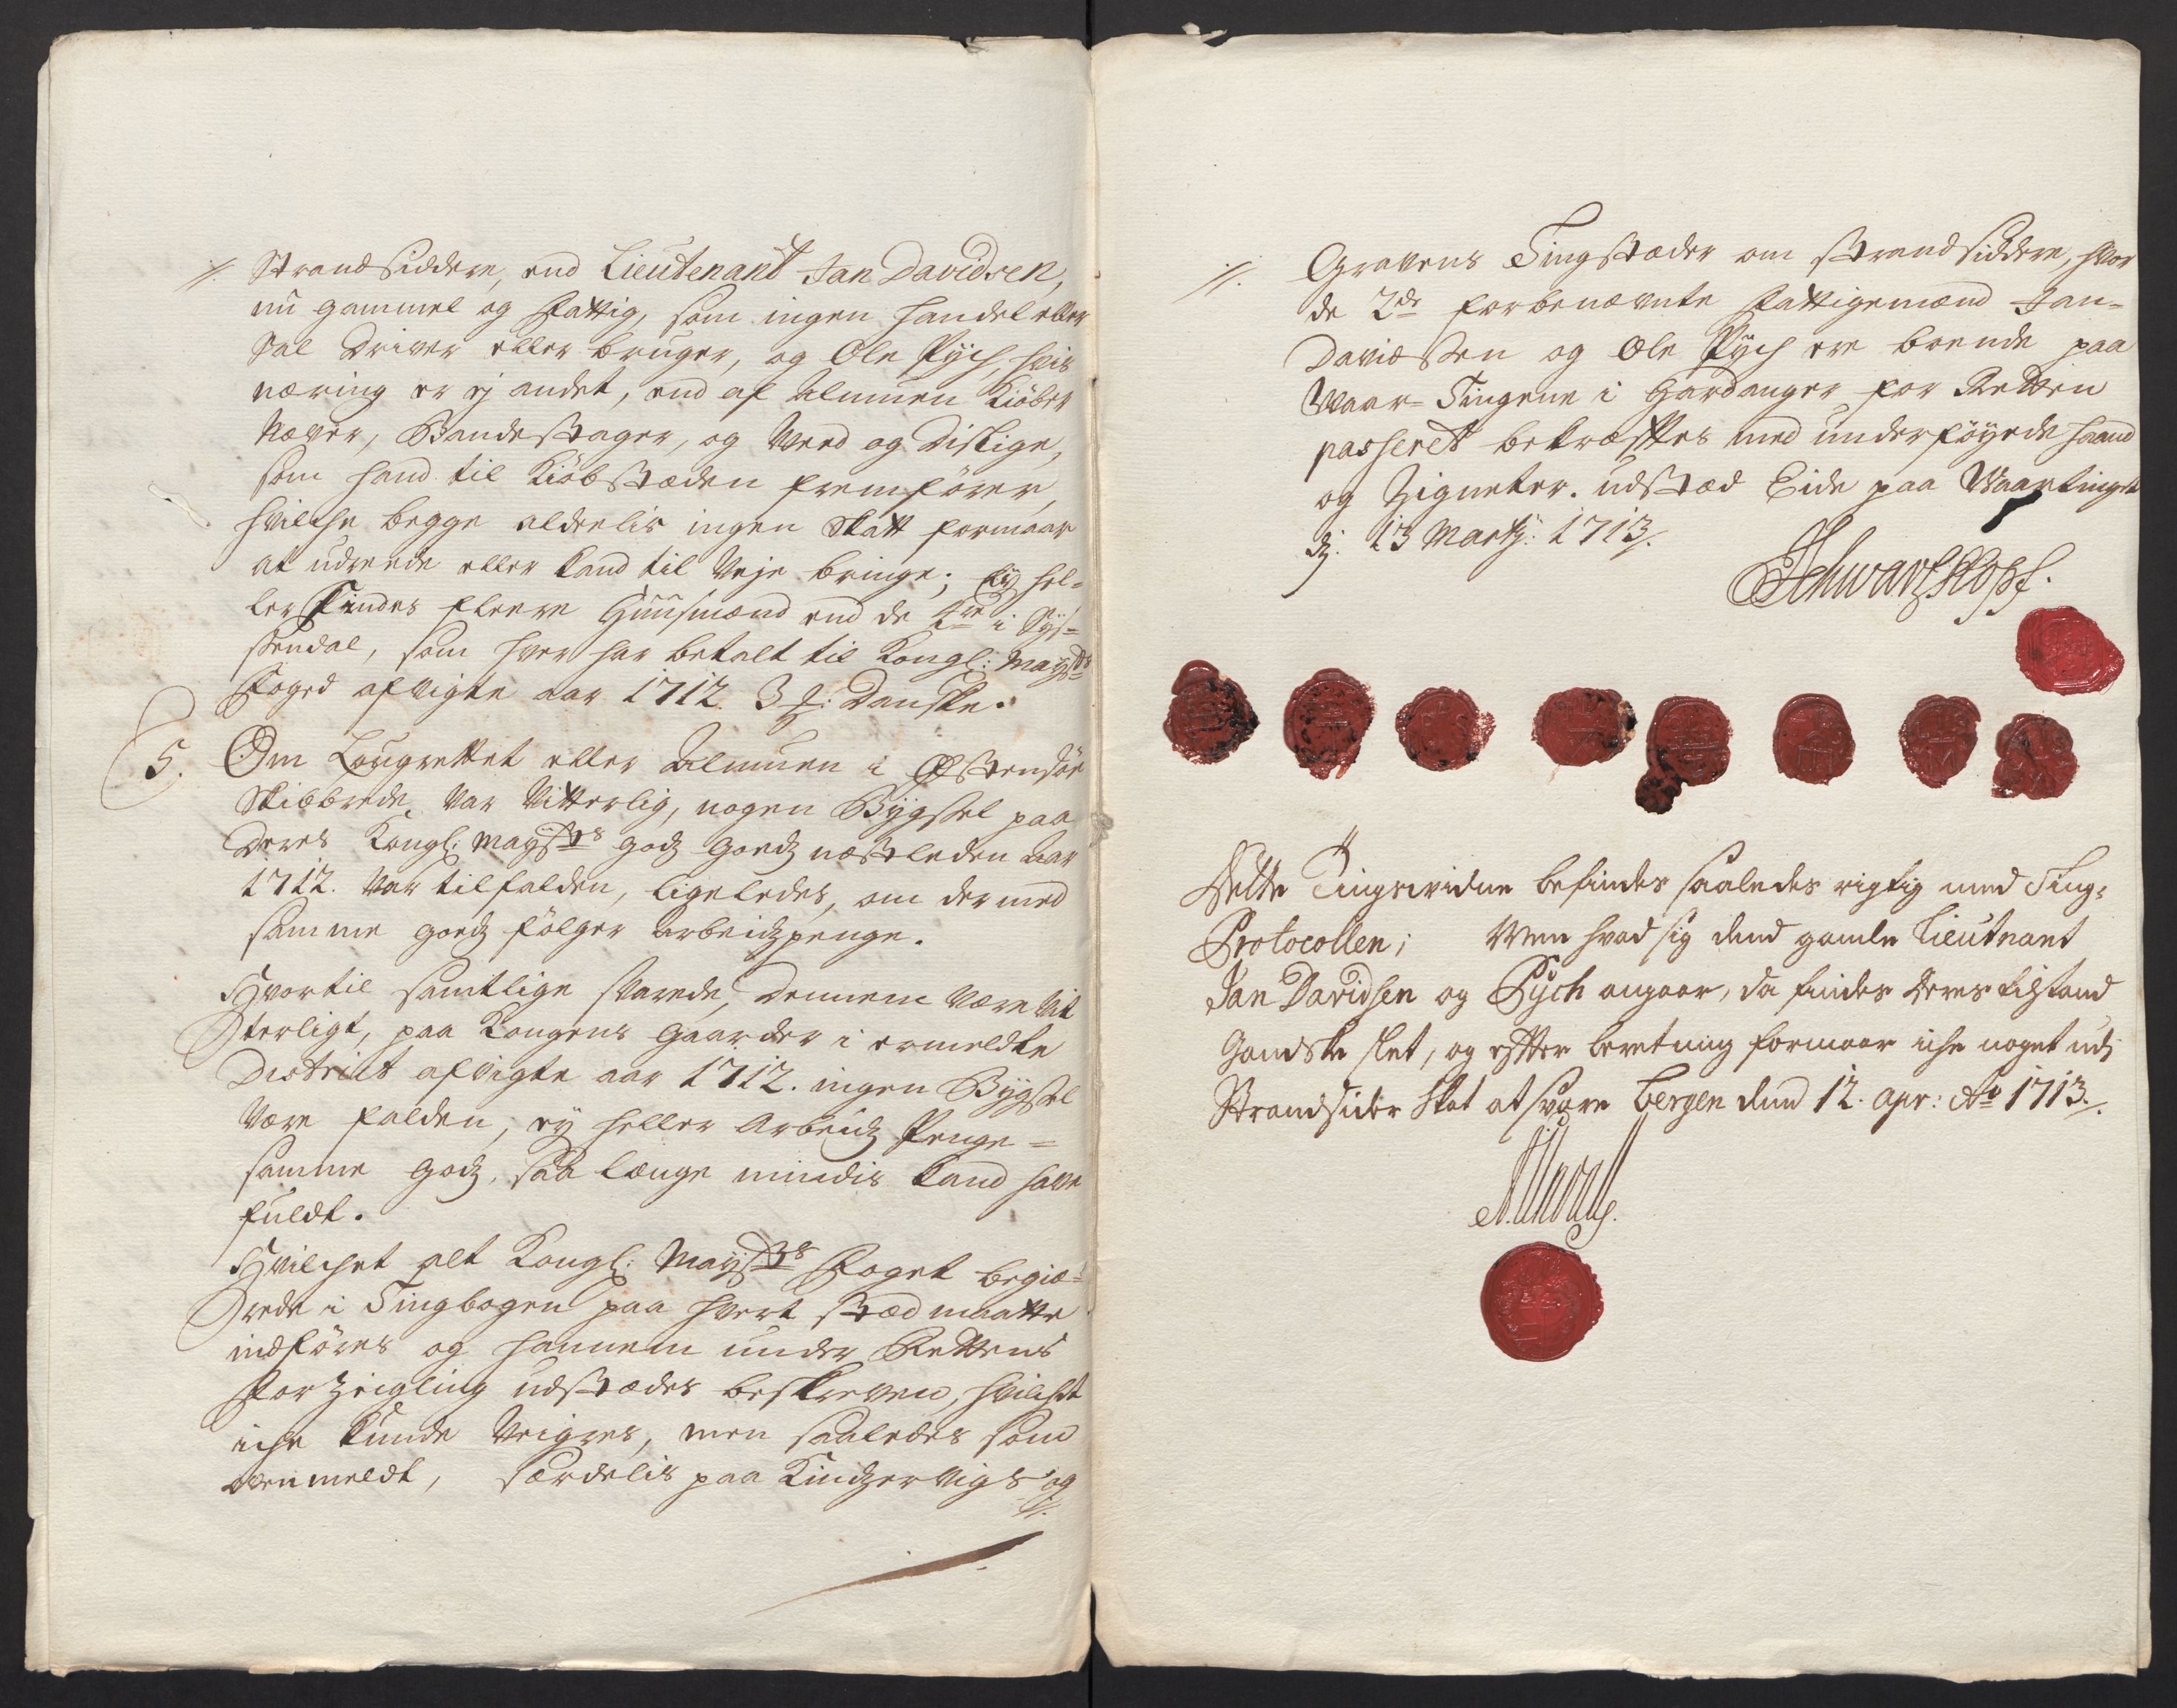 //. Strandsiddere, end Lieutenant Jan Davidsen,
nu gammel og fattig, som ingen handel eller
Sal driver eller bruger, og Ole Pÿch, hvis
næring er ej andet, end af Almuen Kiöber
Næver, Bandestager, og Weed og dislige,
som hand til Kiöbstæden fremförer,
hvilche begge aldelis ingen Skatt formaar
at udreede eller kand til Veje bringe; Eÿ hel-
ler findes fleere Huusmænd end de 2de i Sÿs-
sendal, som hver har betalt til Kongl: Maÿsts
Foged afvigte aar 1712. 3 ß: Danske.
5. Om Laugrettet eller Almuen i Östensöe
Skibbrede, var vitterlig, nogen Bÿgsel paa
Deres Kongl: Maÿsts godz næstleden Aar
1712. var tilfalden, ligeledes, om der med
samme godz fölger Arbeidzpenge.
Hvortil samtlige svarede, dennem være vit
terligt, paa Kongens Gaarder i ermeldte
District afvigte aar 1712. ingen Bÿgsel
være falden, eÿ heller Arbeidz Penge=
samme godz, saa længe mindis kand have
fuldt.
Hvilchet alt Kongl: Maÿsts Foget begiæ-
rede i Tingbogen paa hvert stæd maatte
indföres og hannem under Rettens
forzeigling udstædes beskreven, hvilchet
iche kunde veigres, men saaledes som
ovenmeldt, særdelis paa Kindzervigs og
//.
//. Gravens Tingstæder om strandsiddere, hvor
de 2de forbenævnte fattigemænd Jan-
Davidssen og Ole Pÿch ere boende paa
Waar-Tingene i Hardanger for Retten
passeret bekræfftes med underföÿede haand
og Zigneter. udstæd Eide paa Waartinget
dj: 13 Martÿ: 1713/.
Schwartzkopf.
Dette Tingsvidne befindes saaledes rigtig med Ting-
Protocollen; Men hvad sig dend gamle Lieutnant
Jan Davidsen og Pÿch angaar, da findes deres tilstand
Gandske slet, og effter beretning formaar iche noget udj
Strandsider Skat at svare Bergen dend 12. Apr: Ao 1713./.